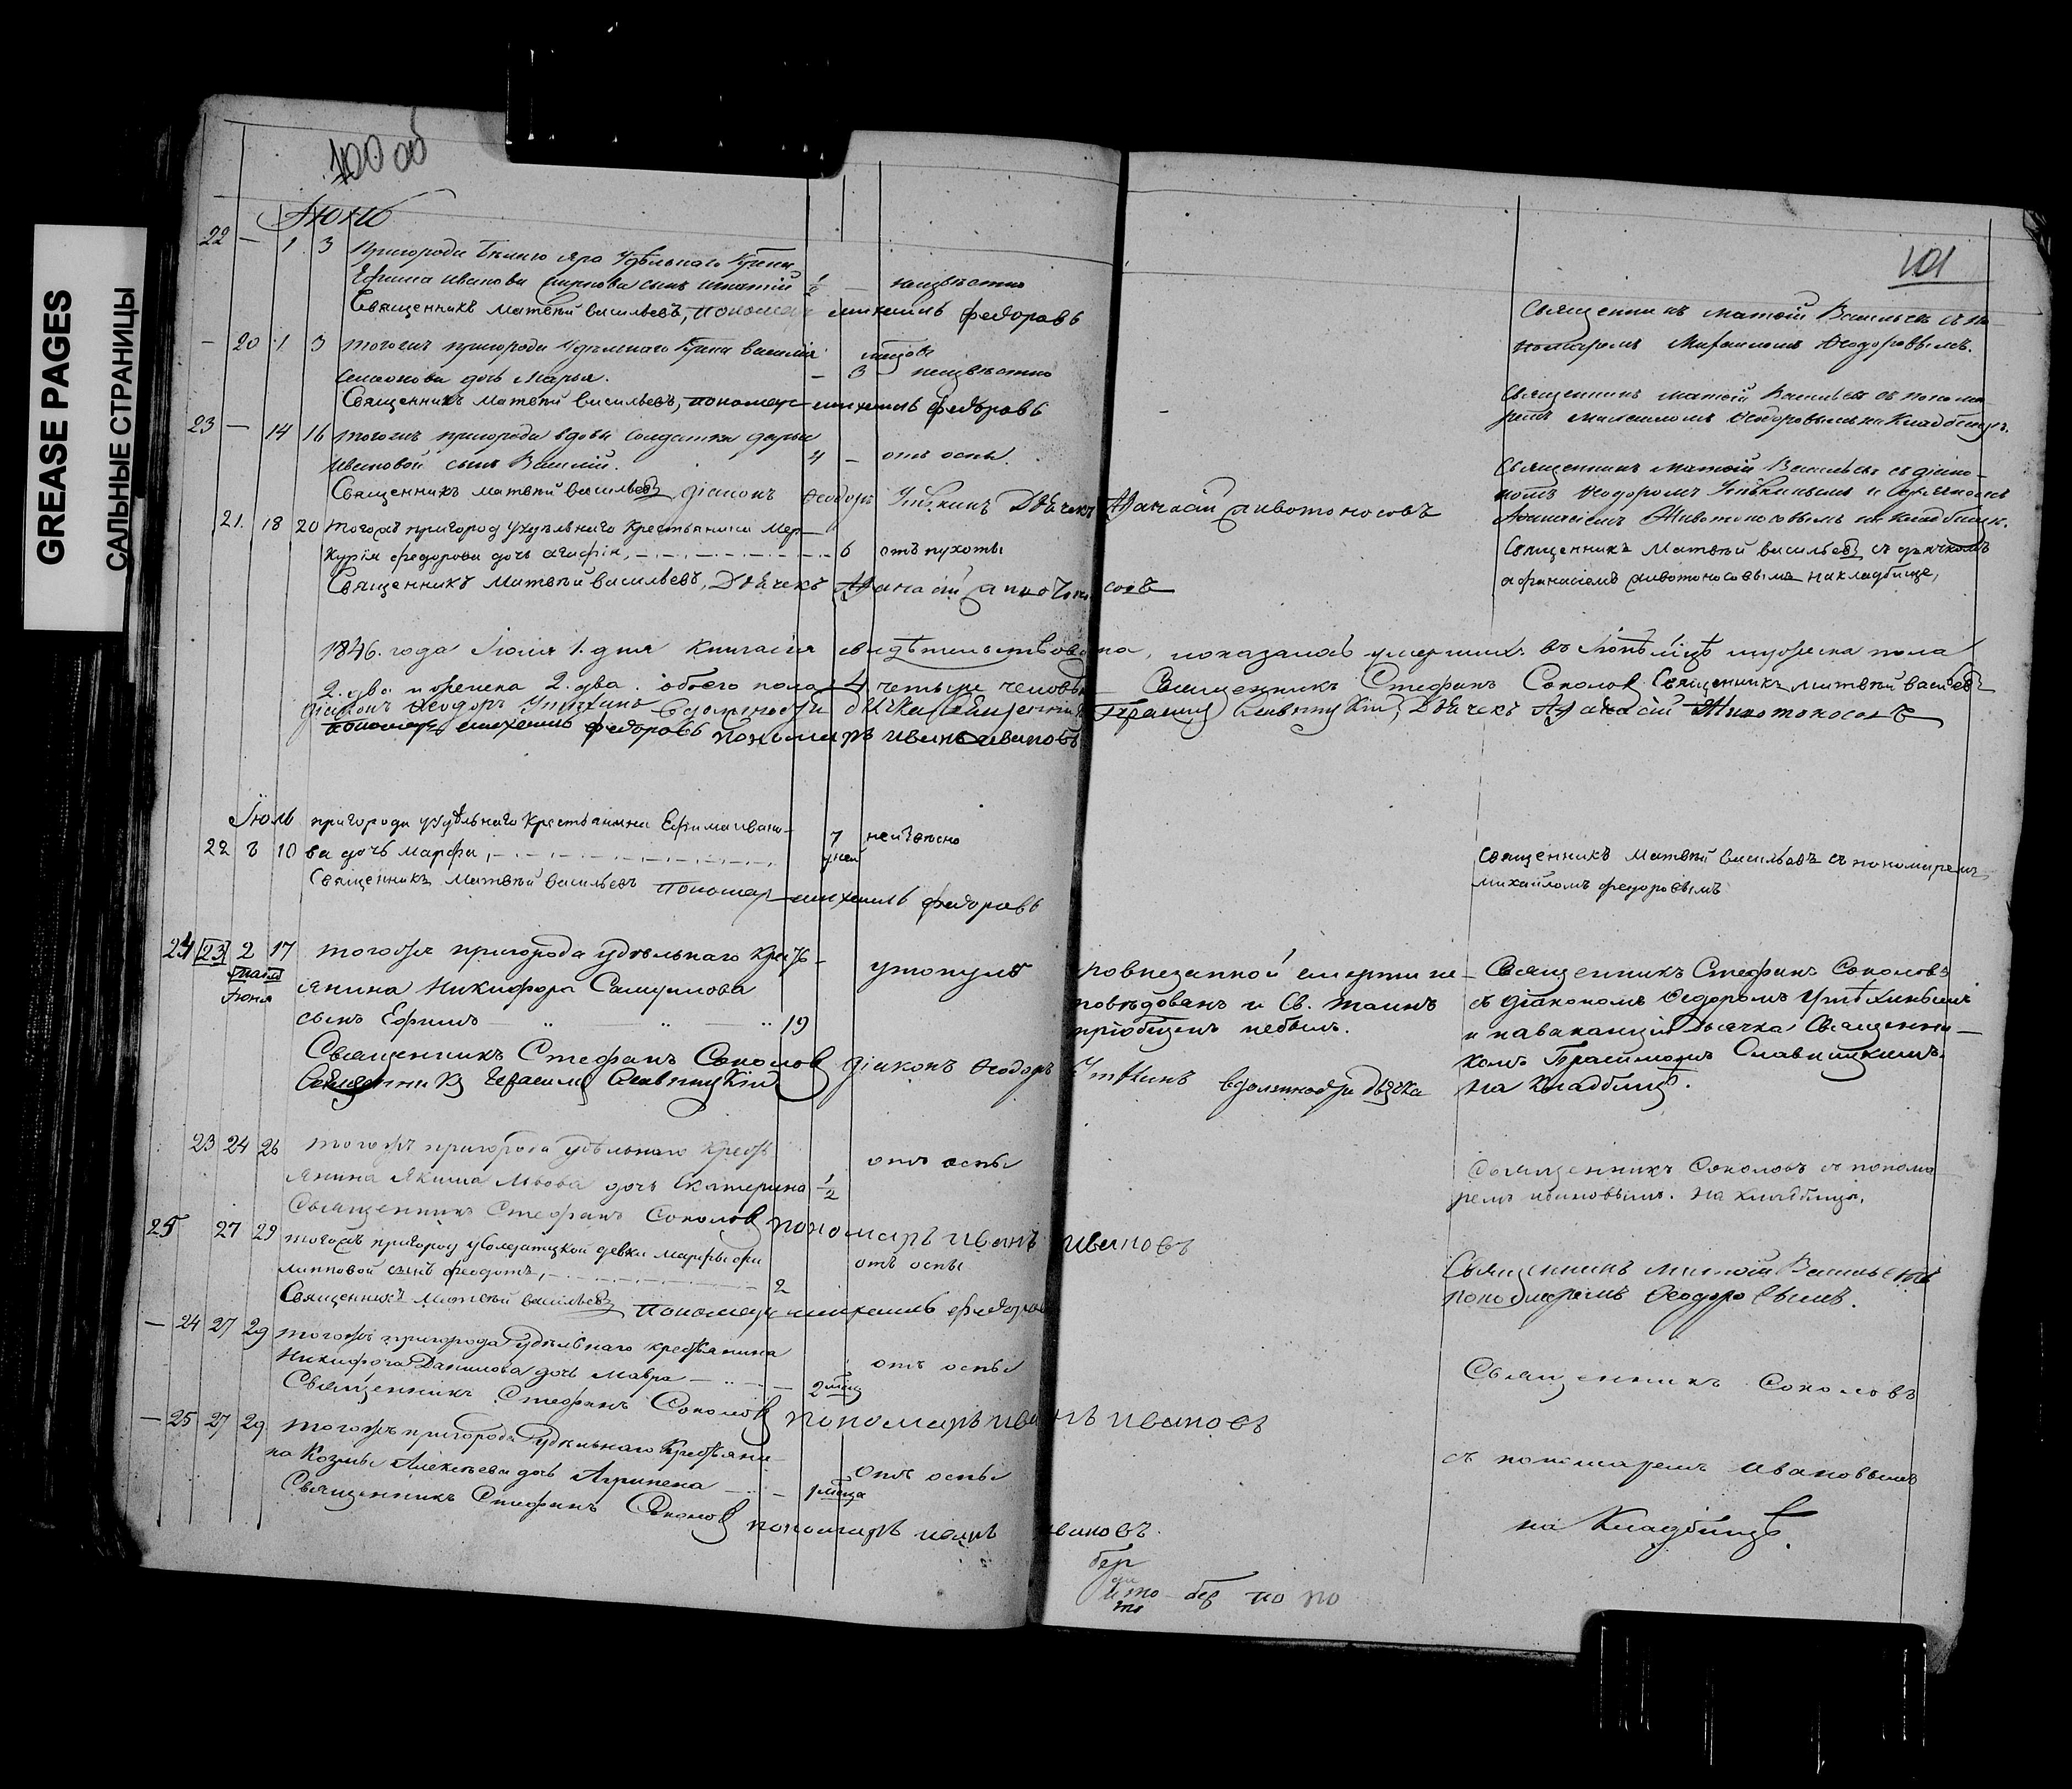 GREASE PAGES
САЛЬНЫЕ СТРАНИЦЫ
100 об
101
Июнь
22 — 1 3 Пригорода Белаго Яра Удѣльнаго
Ефима Иванова сынъ Игнатій 1/2 — неизвѣстно
Священникъ Матвѣй Васильевъ, пономарь Михаилъ Федоровъ
Священникъ Матѳій Васильевъ съ по-
номаремъ Михаиломъ Ѳеодоровымъ.
— 20 1 3 Тогожъ пригорода Удѣльнаго Василія
Симонова дочь Марья. — 3 неизвѣстно
Священникъ Матвѣй Васильевъ, пономарь Михаилъ Федоровъ
Священникъ Матѳій Васильевъ съ понома-
ремъ Михаиломъ Ѳеодоровымъ на Кладбищѣ.
23 — 14 16 Тогожъ пригорода вдовы солдатки Дарьи
Ивановой сынъ Василій. 4 — отъ оспы.
Священникъ Матвѣй Васильевъ діаконъ Ѳеодоръ Утѣхинъ Дьячекъ Афанасій Животоносовъ
Священникъ Матѳій Васильевъ съ діако-
номъ Ѳеодоромъ Утѣхинымъ и дьячкомъ
Афанасіемъ Животоносовымъ на кладбищѣ.
21. 18 20 Тогожъ пригорода удѣльнаго Крестьянина Мер-
курія Федорова дочь Агафія, — 6 отъ сухоты
Священникъ Матвѣй Васильевъ, Дьячекъ Афанасій Животоносовъ
Священникъ Матвѣй Васильевъ съ дьячкомъ
Афанасіемъ Животоносовымъ на кладбище,
1846. года Іюля 1. дня книга сія свидѣтельствована, показалось умершихъ въ Іюнѣ м̃цѣ мужеска пола
2. два и женска 2. два. обоего пола 4 четыре человѣка Священникъ Стефанъ Соколов Священникъ Матвѣй Васильевъ
діаконъ Ѳеодоръ Утѣхинъ в должности дьячка Священникъ Герасимъ Славницкій, Дьячекъ Афанасій Животоносовъ
пономарь Михаилъ Федоровъ Пономарь Иванъ Ивановъ
Іюль пригорода удѣльнаго Крестьянина Ефима Ивано-
22 8 10 ва дочь Марфа, 7 дней неизвѣсно
Священникъ Матвѣй Васильевъ Пономарь Михаилъ Федоровъ
Священникъ Матвѣй Васильевъ съ пономаремъ
Михайломъ Федоровымъ
24 23 2 17 Тогожъ пригорода удѣльнаго Крестъ-
Іюня янина Никифора Самуилова
сынъ Ефимъ — 19
утонулъ
по внезапной смерти не
повѣдованъ и Св. таинъ
пріобщенъ небылъ.
Священникъ Стефанъ Соколовъ
съ діакономъ Ѳедоромъ Утѣхинымъ
и на ваканціи Дьячка Священни-
комъ Герасимомъ Славницкимъ
на Кладбищѣ.
Священникъ Стефанъ Соколов діаконъ Ѳеодоръ Утѣхинъ в должности дьячка
Священникъ Герасимъ Славницкій
23 24 26 Тогожъ пригорода удѣльнаго Крестъ
янина Якима Львова дочь Екатерина 1/2 отъ оспы
Священникъ Стефанъ Соколов пономарь Иванъ Ивановъ
Священникъ Соколовъ съ понома
ремъ Ивановымъ. на кладбищѣ.
25 27 29 Тогожъ пригорода солдатской девки Марфы Фи
липповой сынъ Феодотъ, 2 отъ оспы
Священникъ Матвѣй Васильевъ Пономарь Михаилъ Федоровъ
Священникъ Матѳій Васильевъ
пономаремъ Ѳеодоровымъ.
— 24 27 29 Тогожъ пригорода Удѣльнаго крестьянина
Никифора Данилова дочь Мавра — 2 отъ оспы
Священникъ Стефанъ Соколов Пономарь Иванъ Ивановъ
Священникъ Соколовъ
— 25 27 29 Тогожъ пригорода Удѣльнаго Крестьяни-
на Козмы Алексѣева дочь Агрипена — 1 отъ оспы
Священникъ Стефанъ Соколов пономарь Иванъ Ивановъ.
съ пономаремъ Ивановымъ
на Кладбищѣ.